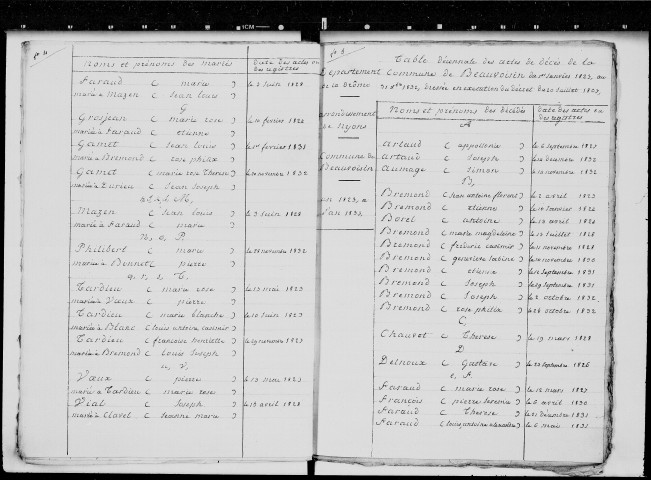 Noms et prénoms des mariés
Date des actes ou
des registres
Faraud ( marie ) le 3 juin 1828
mariée à Mazen ( Jean louis )
G
Grosjean ( marie rose ) le 10 février 1826
mariée à Faraud ( etienne )
Gamet ( Jean louis ) le 1er février 1831
marié à Bremond ( rose philix )
Gamet ( marie rose Thérèse ) le novembre 1832
mariée à ( Jean Joseph )
M,
Mazen ( Jean louis ) le 3 juin 1828
marié à Faraud ( marie )
n, o, P.
Philibert ( marie ) le 28 novembre 1832
mariée à Bonnet ( pierre )
q, r, s, T.
Tardieu ( marie rose ) le 13 mai 1823
mariée à Vœux ( pierre )
Tardieu ( marie blanche ) le 10 juin 1823
mariée à Blanc ( louis antoine casimir )
Tardieu ( françoise henriette ) le 29 1823
mariée à Bremond ( Louis Joseph )
u, V,
Vœux ( pierre ) le 13 mai 1823
marié à Tardieu ( marie rose )
Vial ( Joseph ) le 13 avril 1828
marié à Clavel ( Jeanne marie )
Département
de la Drôme
arrondissement
de Nyons
Commune de
Beauvoisin
an 1823, à
l'an 1832,
Table Décennale des actes de décès de la
Commune de Beauvoisin du 1er Janvier 1823, au
31 Xbre 1832, dressée en exécution du décret du 20 Juillet 1807,
Noms et prénoms des décédés
Date des actes ou
des registres
A
Artaud ( appollonie ) le 6 septembre 1825
Artaud ( Joseph ) le 12 décembre 1832
Aumage ( Simon ) le 18 novembre 1832
B,
Bremond ( Jean antoine florent ) le 2 avril 1823
Bremond ( etienne ) le 10 Janvier 1826
Borel ( antoine ) le 18 avril 1826
Bremond ( marie magdelaine ) le 13 Juillet 1828
Bremond ( frédéric casimir ) le novembre 1828
Bremond ( geneviève sabine ) le novembre 1830
Bremond ( etienne ) le septembre 1831
Bremond ( Joseph ) le 29 septembre 1831
Bremond ( Joseph ) le 2 octobre 1832
Bremond ( rose philix ) le 28 octobre 1832
C,
Chauvet ( Thérèse ) le 19 mars 1828
D
Delhoux ( Gustave ) le 23 septembre 1826
e, F
Faraud ( marie rose ) le 12 mars 1823
François ( pierre jérémie ) le 6 avril 1830
Faraud ( Thérèse ) le 21 décembre 1831
Faraud ( louis antoine alexandre ) le 6 mai 1832